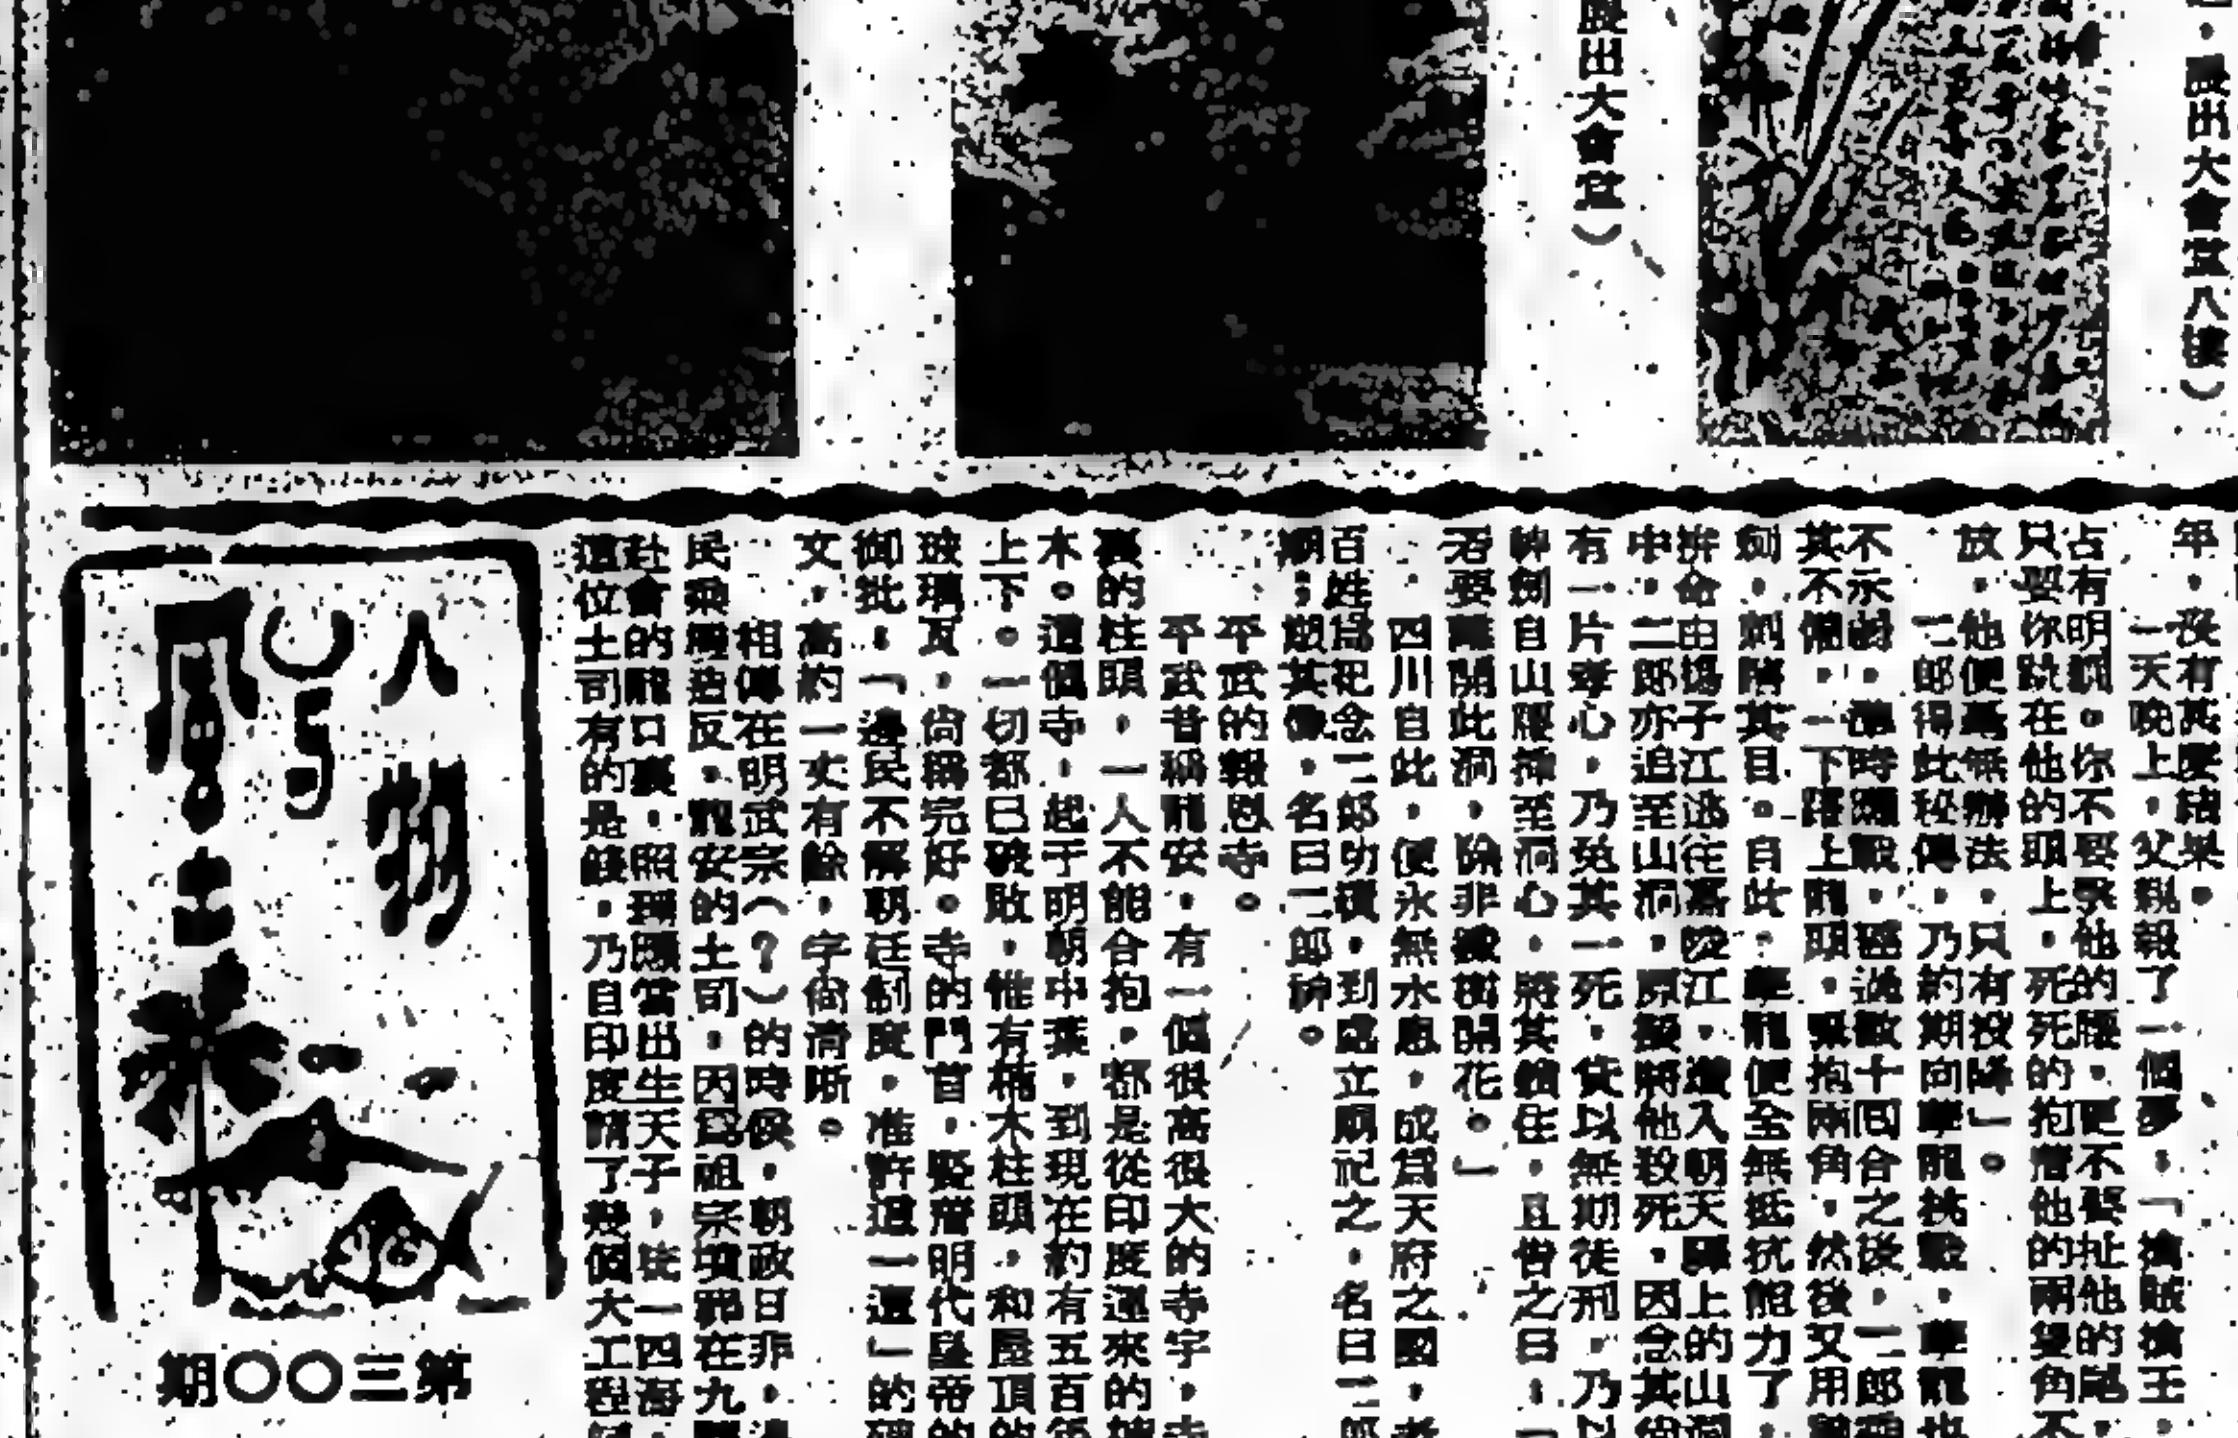 展出大會堂）
展出大會堂八樓）
年，沒有甚麼結果。
一天晚上，父親報了一個夢，「擒賊擒王，
占有明訓。你不要緊他的腰，更不要扯他的尾，
只要你跌在他的頭上，死死的抱着他的兩隻角不
放，他便爲無辦法，只有投降」。
二郎得此秘傳，乃約期向孽龍挑戰，孽龍也
不示弱，準時應戰，經過數十回合之後，二郎
其不備，一下踏上龍頭，緊抱兩角，然後又用
劍，刺瞎其目。自此，孽龍便全無抵抗能力了，
拚命由揚子江逃往嘉陵江，遁入朝天驛上的山洞
中，二郎亦追至山洞，原擬將他殺死，因念其尙
有一片孝心，乃免其一死，貸以無期徒刑，乃以
劍自山腰揷至洞心，將其鎖住，且咎之曰，「
若要離開此洞，除非鐵樹開花。」
四川自此，便永無水患，成爲天府之國，
百姓爲祀念二郎功績，到處立廟祀之，名曰二郎
廟；塑其像，名曰二郎神。
平武的報恩寺。
平武昔稱龍安，有一個很高很大的寺宇，寺
裏的柱頭，一人不能合抱，都是從印度運來的楠
木。這個寺，起于明朝中葉，到現在約有五百年
上下。一切都已破敗，惟有楠木柱頭，和屋頂的
玻璃瓦，尙稱完好。寺的門首，竪着明代皇帝的
御批，「邊民不解朝廷制度，准許這一遭」的碑
文，高約一丈有餘，字尙清晰。
相傳在明武宗（？）的時候，朝政日非，
民衆醞造反，龍安的土司，因爲祖宗墳墓在九龍
赴會的龍口裏，照理應當出生天子，統一四海，
這位土司有的是錢，乃自印度請了幾個大工程師
人物
與
風土
第三〇〇期